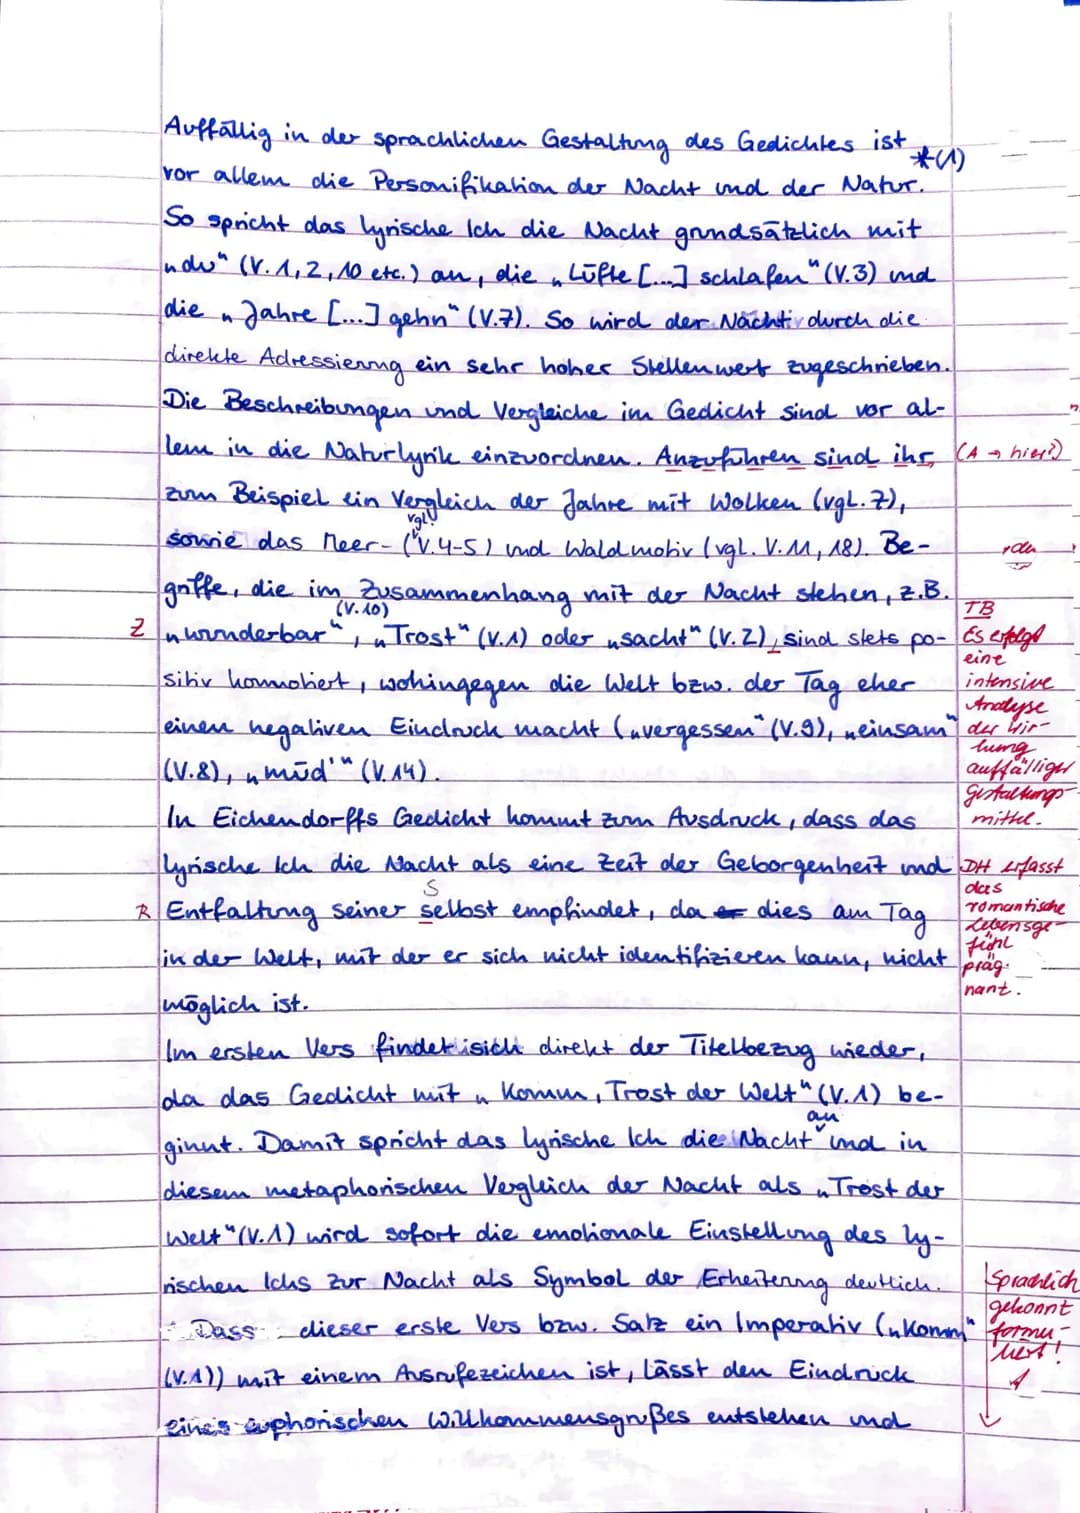 Auffällig in der sprachlichen Gestaltung des Gedichtes ist
*(1)
vor allem die Personifikation der Nacht und der Natur.
So spricht das lyrische Ich die Nacht grundsätzlich mit
„du" (V. 1, 2, 10 etc.) an, die „Lüfte [...] schlafen" (V.3) und
die „Jahre [...] gehn" (V.7). So wird der Nacht durch die
direkte Adressierung ein sehr hoher Stellenwert zugeschrieben.
Die Beschreibungen und Vergleiche im Gedicht sind vor al-
lem in die Naturlyrik einzuordnen. Anzuführen sind ihr (A → hier?)
zum Beispiel ein Vergleich der Jahre mit Wolken (vgl. 7),
vgl.
sowie das Meer- (V. 4-5) und Waldmotiv (vgl. V. 11, 18). Be-
griffe, die im Zusammenhang mit der Nacht stehen, z.B.
(V. 10)
Z „wunderbar", „Trost" (V.1) oder „sacht" (V. 2), sind stets po-
sitiv konnotiert, wohingegen die Welt bzw. der Tag eher
einen negativen Eindruck macht („vergessen" (V.9), „einsam"
(V.8), „müd'" (V. 14).
TB
Es erfolgt
eine
intensive
Analyse
der Wir-
kung
auffälliger
Gestaltungs-
mittel.
In Eichendorffs Gedicht kommt zum Ausdruck, dass das
lyrische Ich die Nacht als eine Zeit der Geborgenheit und
S
R Entfaltung seiner selbst empfindet, da er dies am Tag
in der Welt, mit der er sich nicht identifizieren kann, nicht
möglich ist.
DH erfasst
das
romantische
Lebensge-
fühl
präg-
nant.
Im ersten Vers findet sich direkt der Titelbezug wieder,
da das Gedicht mit „Komm, Trost der Welt" (V. 1) be-
an
ginnt. Damit spricht das lyrische Ich die Nacht und in
diesem metaphorischen Vergleich der Nacht als „Trost der
Welt" (V. 1) wird sofort die emotionale Einstellung des ly-
rischen Ichs zur Nacht als Symbol der Erheiterung deutlich.
Dass dieser erste Vers bzw. Satz ein Imperativ („Komm"
(V. 1)) mit einem Ausrufezeichen ist, lässt den Eindruck
eines euphorischen Willkommensgrußes entstehen und
Sprachlich
gekonnt
formu-
liert!